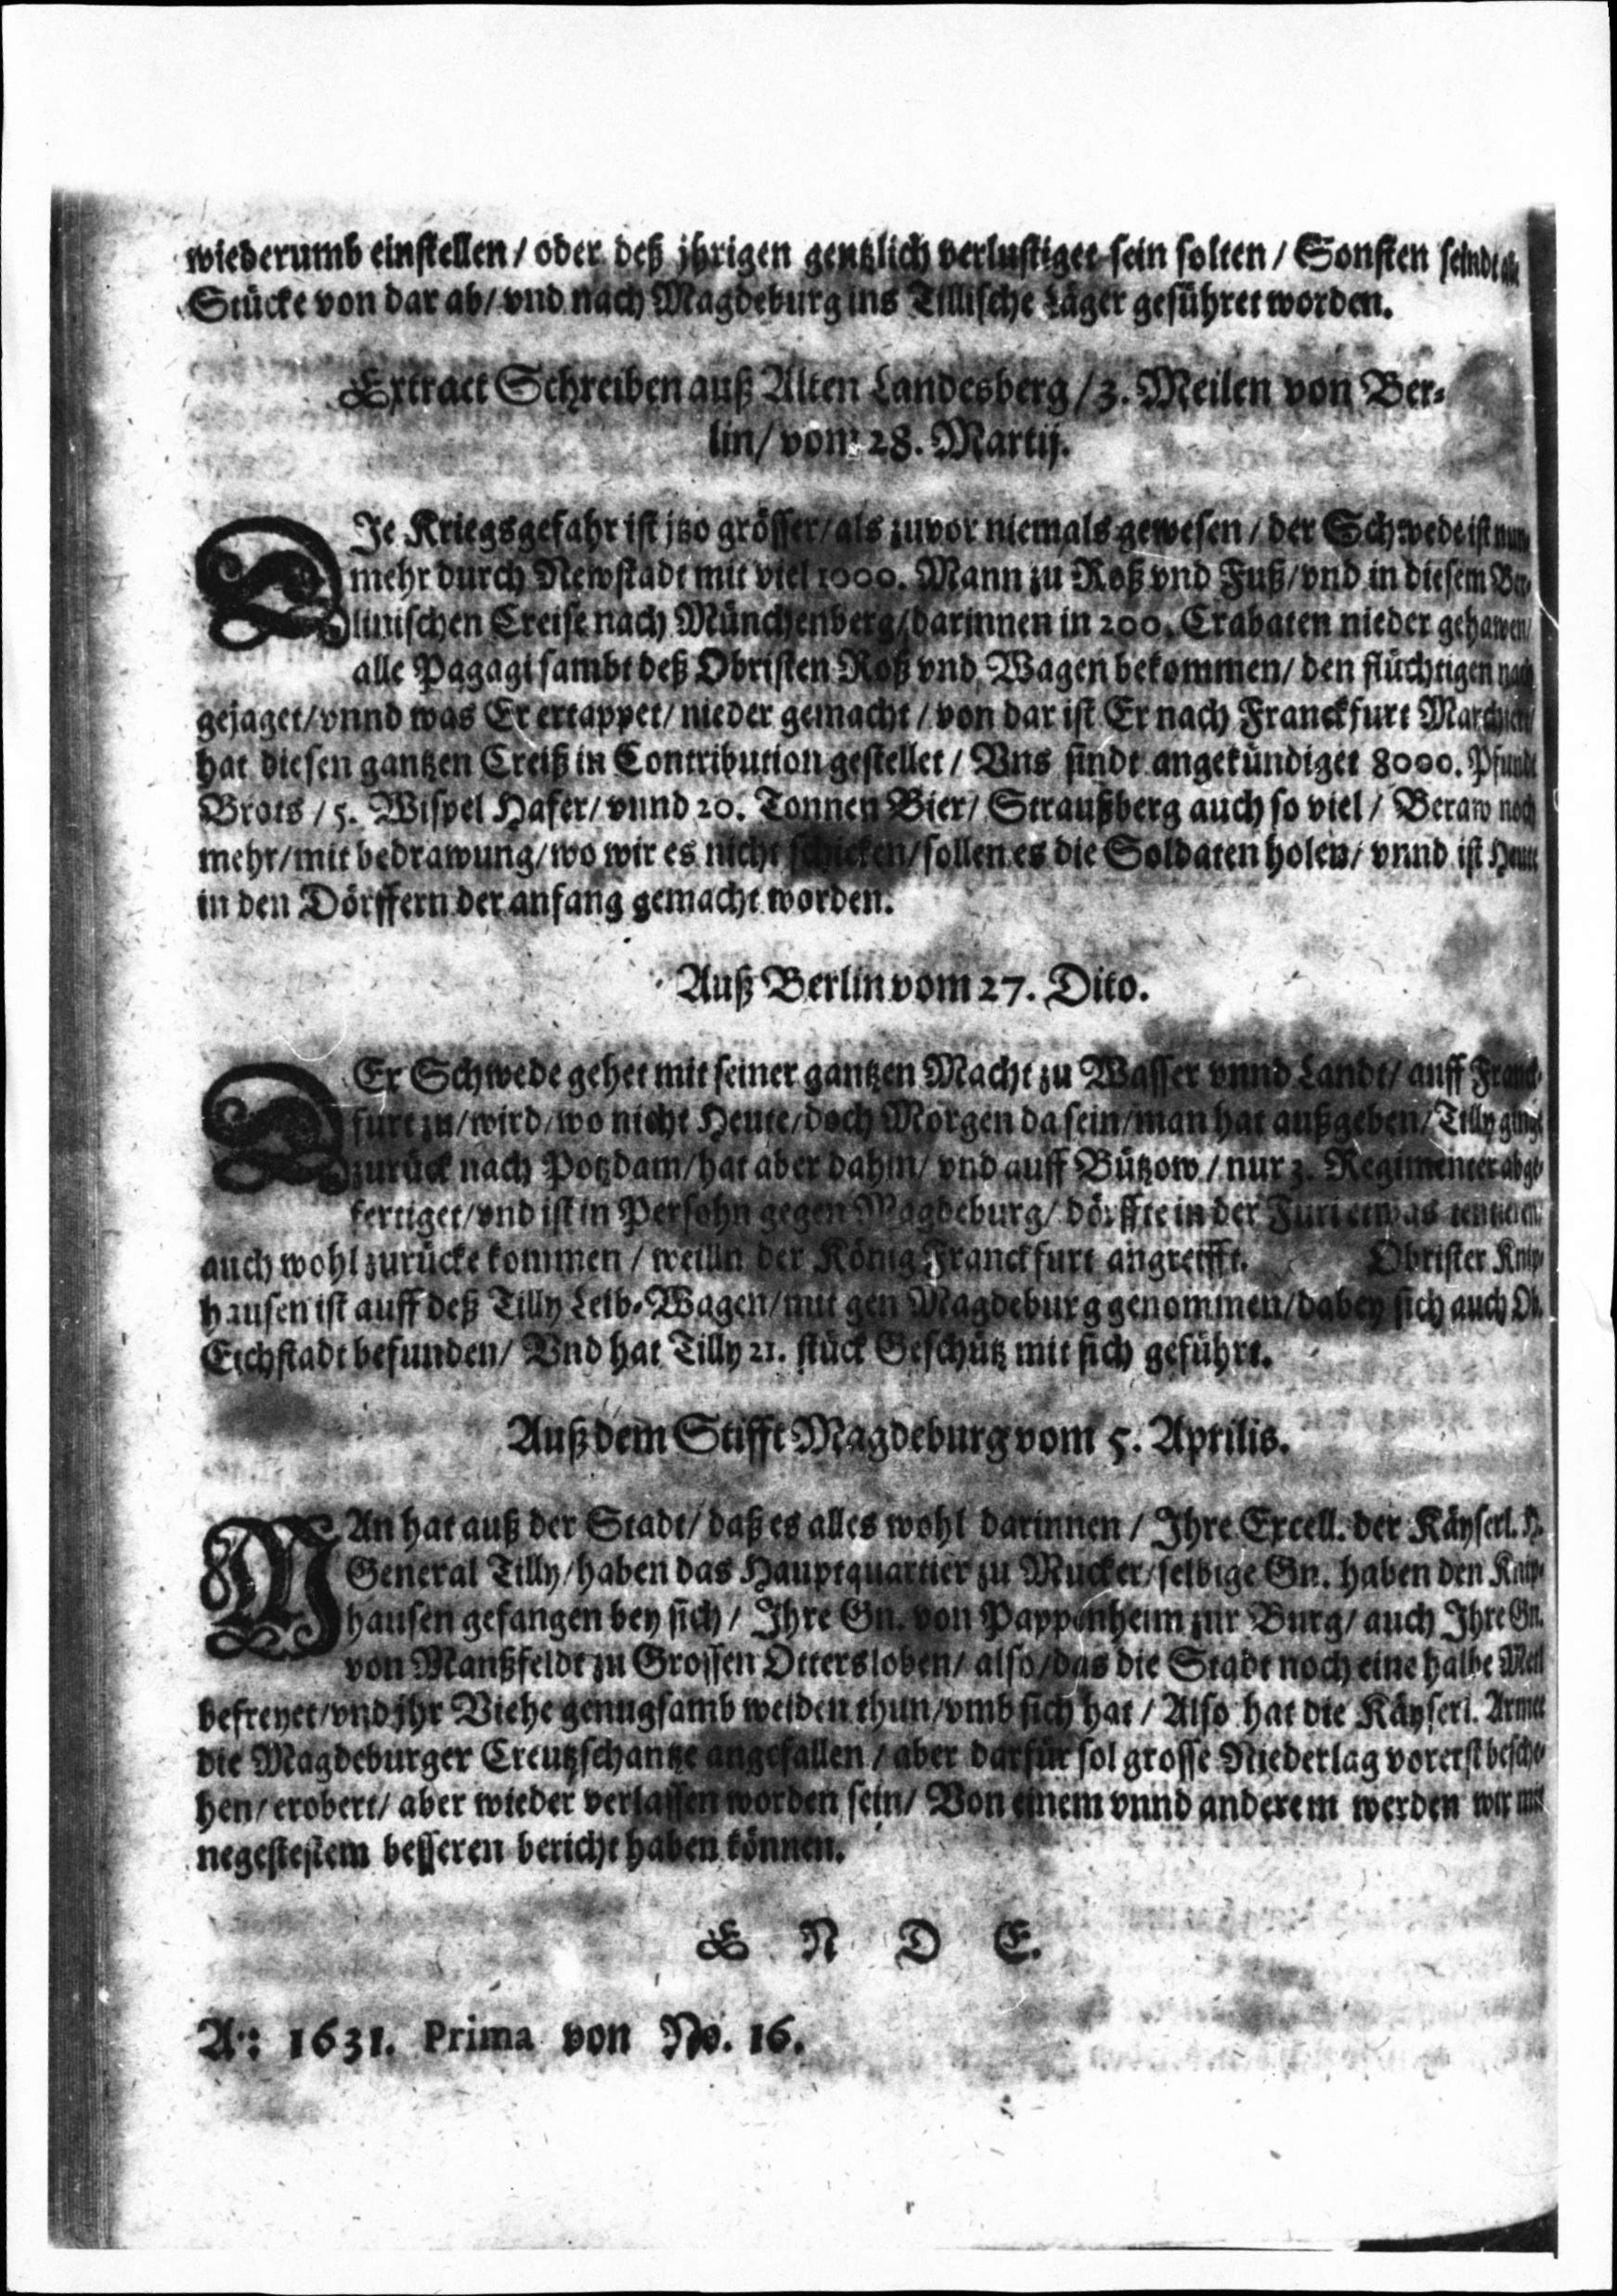 wiederumb einstellen / oder deß jhrigen gentzlich verlustiget sein solten / Sonsten seindt alle
Stücke von dar ab / vnd nach Magdeburg ins Tillische Läger geführet worden.
Extract Schreiben auß Alten Landesberg / 3. Meilen von Ber-
lin / vom 28. Martij.
DIe Kriegsgefahr ist jtzo grösser / als zuvor niemals gewesen / der Schwede ist nun-
mehr durch Newstadt mit viel 1000. Mann zu Roß vnd Fuß / vnd in diesem Ber-
linischen Creise nach Münchenberg / darinnen in 200. Crabaten nieder gehawen /
alle Pagagi sambt deß Obristen Roß vnd Wagen bekommen / den flüchtigen nach
gejaget / vnnd was Er ertappet / nieder gemacht / von dar ist Er nach Franckfurt Marchiert /
hat diesen gantzen Creiß in Contribution gestellet / Vns sindt angekündiget 8000. Pfundt
Brots / 5. Wispel Hafer / vnnd 20. Tonnen Bier / Straußberg auch so viel / Beraw noch
mehr / mit bedrawung / wo wir es nicht schicken / sollen es die Soldaten holen / vnnd ist Heute
in den Dörffern der anfang gemacht worden.
Auß Berlin vom 27. Dito.
DEr Schwede gehet mit seiner gantzen Macht zu Wasser vnnd Landt / auff Franck-
furt zu / wird / wo nicht Heute / doch Morgen da sein / man hat außgeben / Tilly ginge
zurück nach Potzdam / hat aber dahin / vnd auff Bützow / nur 3. Regimenter abge-
fertiget / vnd ist in Persohn gegen Magdeburg / dörffte in der Furi etwas
auch wohl zurücke kommen / weiln der König Franckfurt angreifft. Obrister Knip-
hausen ist auff deß Tilly Leib-Wagen / mit gen Magdeburg genommen / dabey sich auch Ob.
Eichstadt befunden / Vnd hat Tilly 21. stück Geschütz mit sich geführt.
Auß dem Stifft Magdeburg vom 5. Aprilis.
MAn hat auß der Stadt / daß es alles wohl darinnen / Ihre Excell. der Käyserl. H.
General Tilly / haben das Hauptquartier zu Mucker / selbige Gn. haben den Knip-
hausen gefangen bey sich / Ihre Gn. von Pappenheim zur Burg / auch Ihre Gn.
von Manßfeldt zu Grossen Ottersloben / also / das die Stadt noch eine halbe Meil
befreyet / vnd jhr Viehe genugsamb weiden thun / vmb sich hat / Also hat die Käyserl. Armee
die Magdeburger Creutzschantze angefallen / aber darfür sol grosse Niederlag vorerst besche-
hen / erobert / aber wieder verlassen worden sein / Von einem vnnd anderem werden wir mit
negestestem besseren bericht haben können.
E N D E.
A:: 1631. Prima von No. 16.